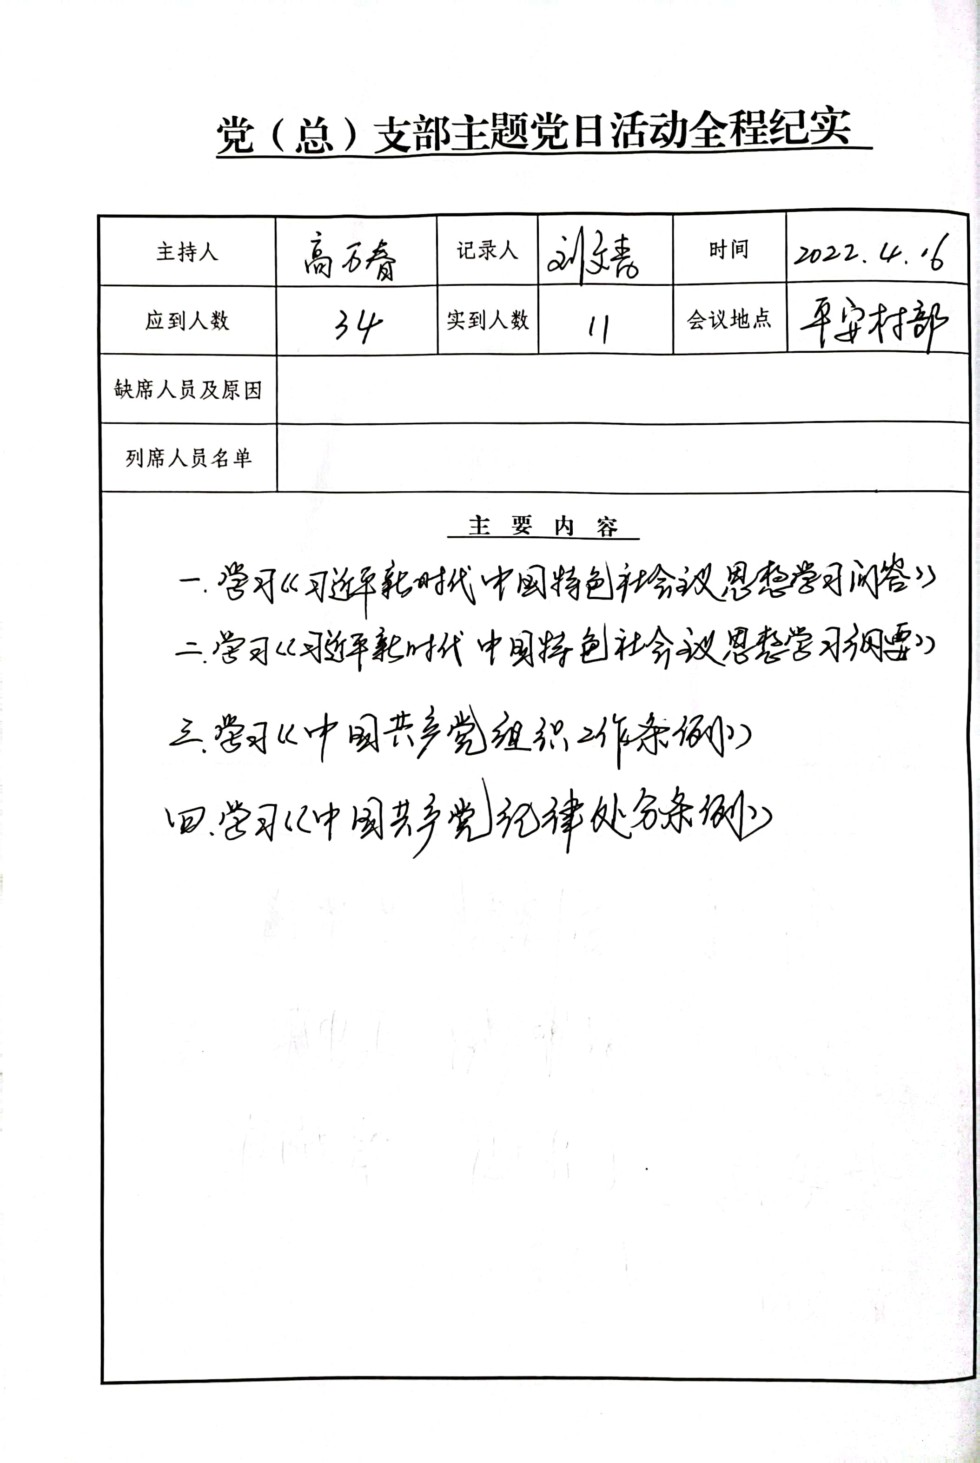 党（总）支部主题党日活动全程纪实
主持人 高万春 记录人 刘文涛 时间 2022.4.16
应到人数 34 实到人数 11 会议地点 平安村部
缺席人员及原因
列席人员名单
主要内容
一.学习《习近平新时代中国特色社会主义思想学习问答》
二.学习《习近平新时代中国特色社会主义思想学习纲要》
三.学习《中国共产党组织工作条例》
四.学习《中国共产党纪律处分条例》